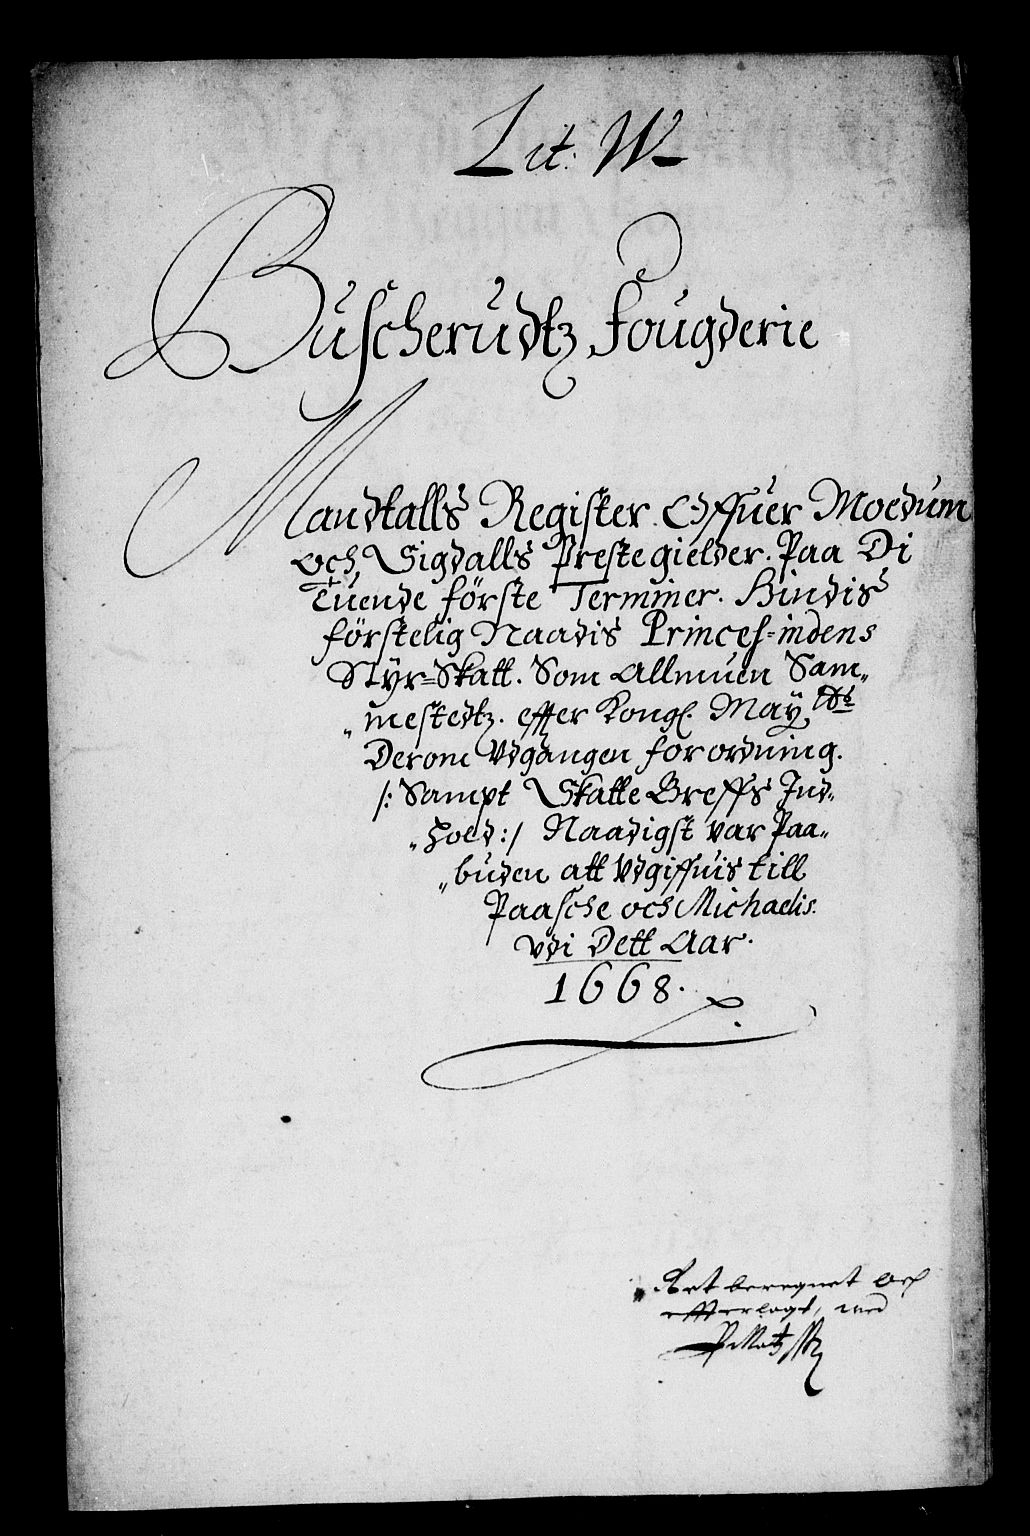 Lit: W
Buscherudtz Fougderie
Mandtalls Register Offuer Moedum
och Sigdalls Prestegielder. Paa Di
Tuende förste Terminer. Hindis
förstelig Naadis Princes=indens
Styr=Skatt. Som Allmuen Sam„
„mestedtz. effter Kongl. May.tts
Derom Vdgangen forordning.
/: Sampt Skatte Breffs Ind„
„hold :/ Naadigst var Paa„
„buden att Vdgiffuis till
Paasche och Michaelis.
vdi Dett Aar.
1668.
Ret beregnet och
efterlagt, med